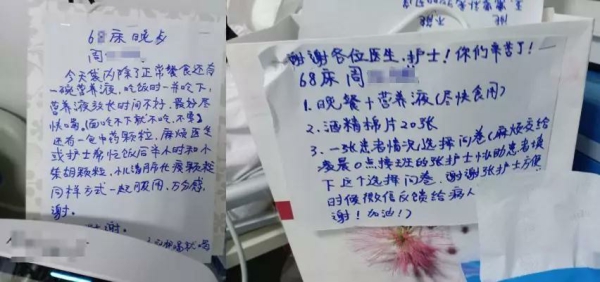 68床晚步
周
今天袋内除了正常餐食还有
一碗营养液,吃饭时一并吃下,
营养液放长时间不好,最好尽
快喝。(面吃不下就不吃,不要)
还有一包中药颗粒,麻烦医生
或护士帮忙饭后半小时和小
柴胡颗粒,小儿清肺化痰颗粒
同样方式一起服用,万分感
谢。
谢谢各位医生、护士!你们辛苦了!
68床 周
1.晚餐+营养液(尽快食用)
2.酒精棉片20张
3.一张患者情况选择问卷(麻烦交给
凌晨0点接班的张护士,协助患者填
下这个选择问卷,谢谢张护士方便
时候微信反馈给病人
谢!加油!)